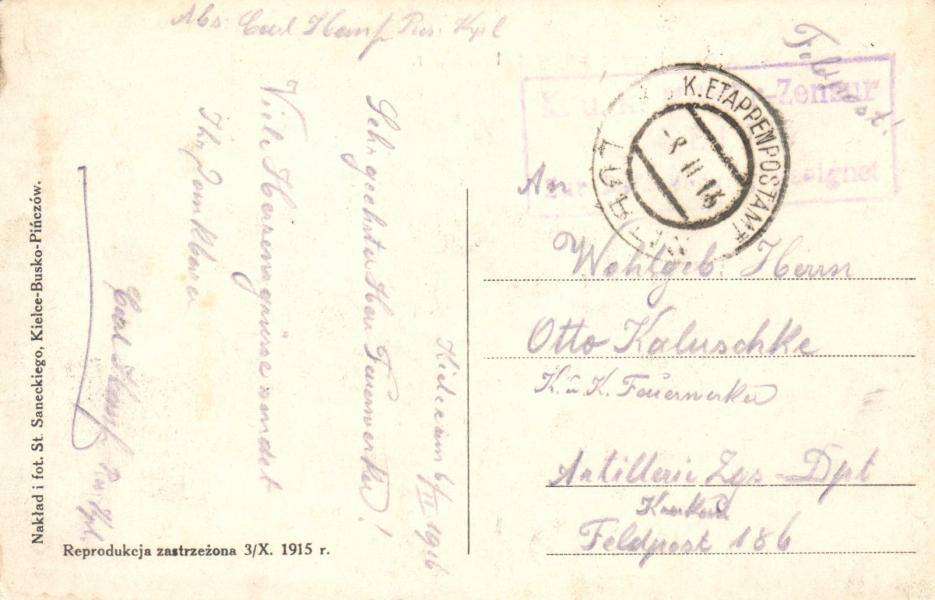 Abs. Carl Hanf Res. Kpl
Feldpost!
K. u. k. Zensur
zur geeignet
K. ETAPPENPOSTAMT
An
Wohlgeb. Herrn
Otto Kaluschke
K. u. K. Feuerwerker
Artillerie Zgs-Dpt
Krakau
Feldpost 186
Kielce am 6/II 1916
Sehr geehrter Herr Feuerwerker!
Viele Herzensgrüsse sendet
Ihr Dankbarer
Carl Hanf Res. Kpl.
Nakład i fot. St. Saneckiego, Kielce-Busko-Pińczów.
Reprodukcja zastrzeżona 3/X. 1915 r.